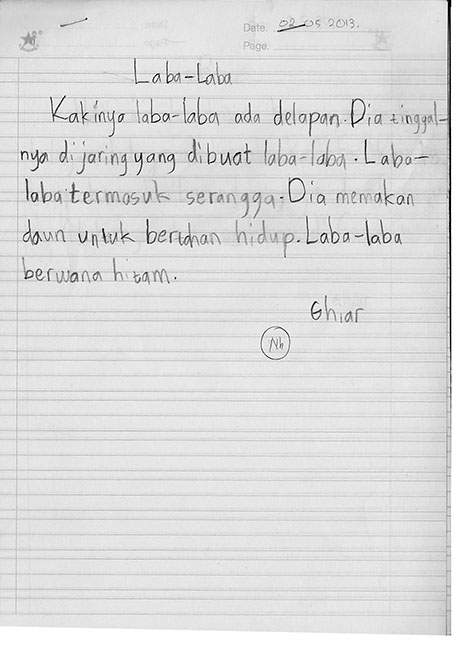 Date. 02 05 2013.
Page.
Laba-Laba
Kakinya laba-laba ada delapan. Dia tinggal-
nya di jaring yang dibuat laba-laba. Laba-
laba termasuk serangga. Dia memakan
daun untuk bertahan hidup. Laba-laba
berwana hitam.
Ghiar
Nh